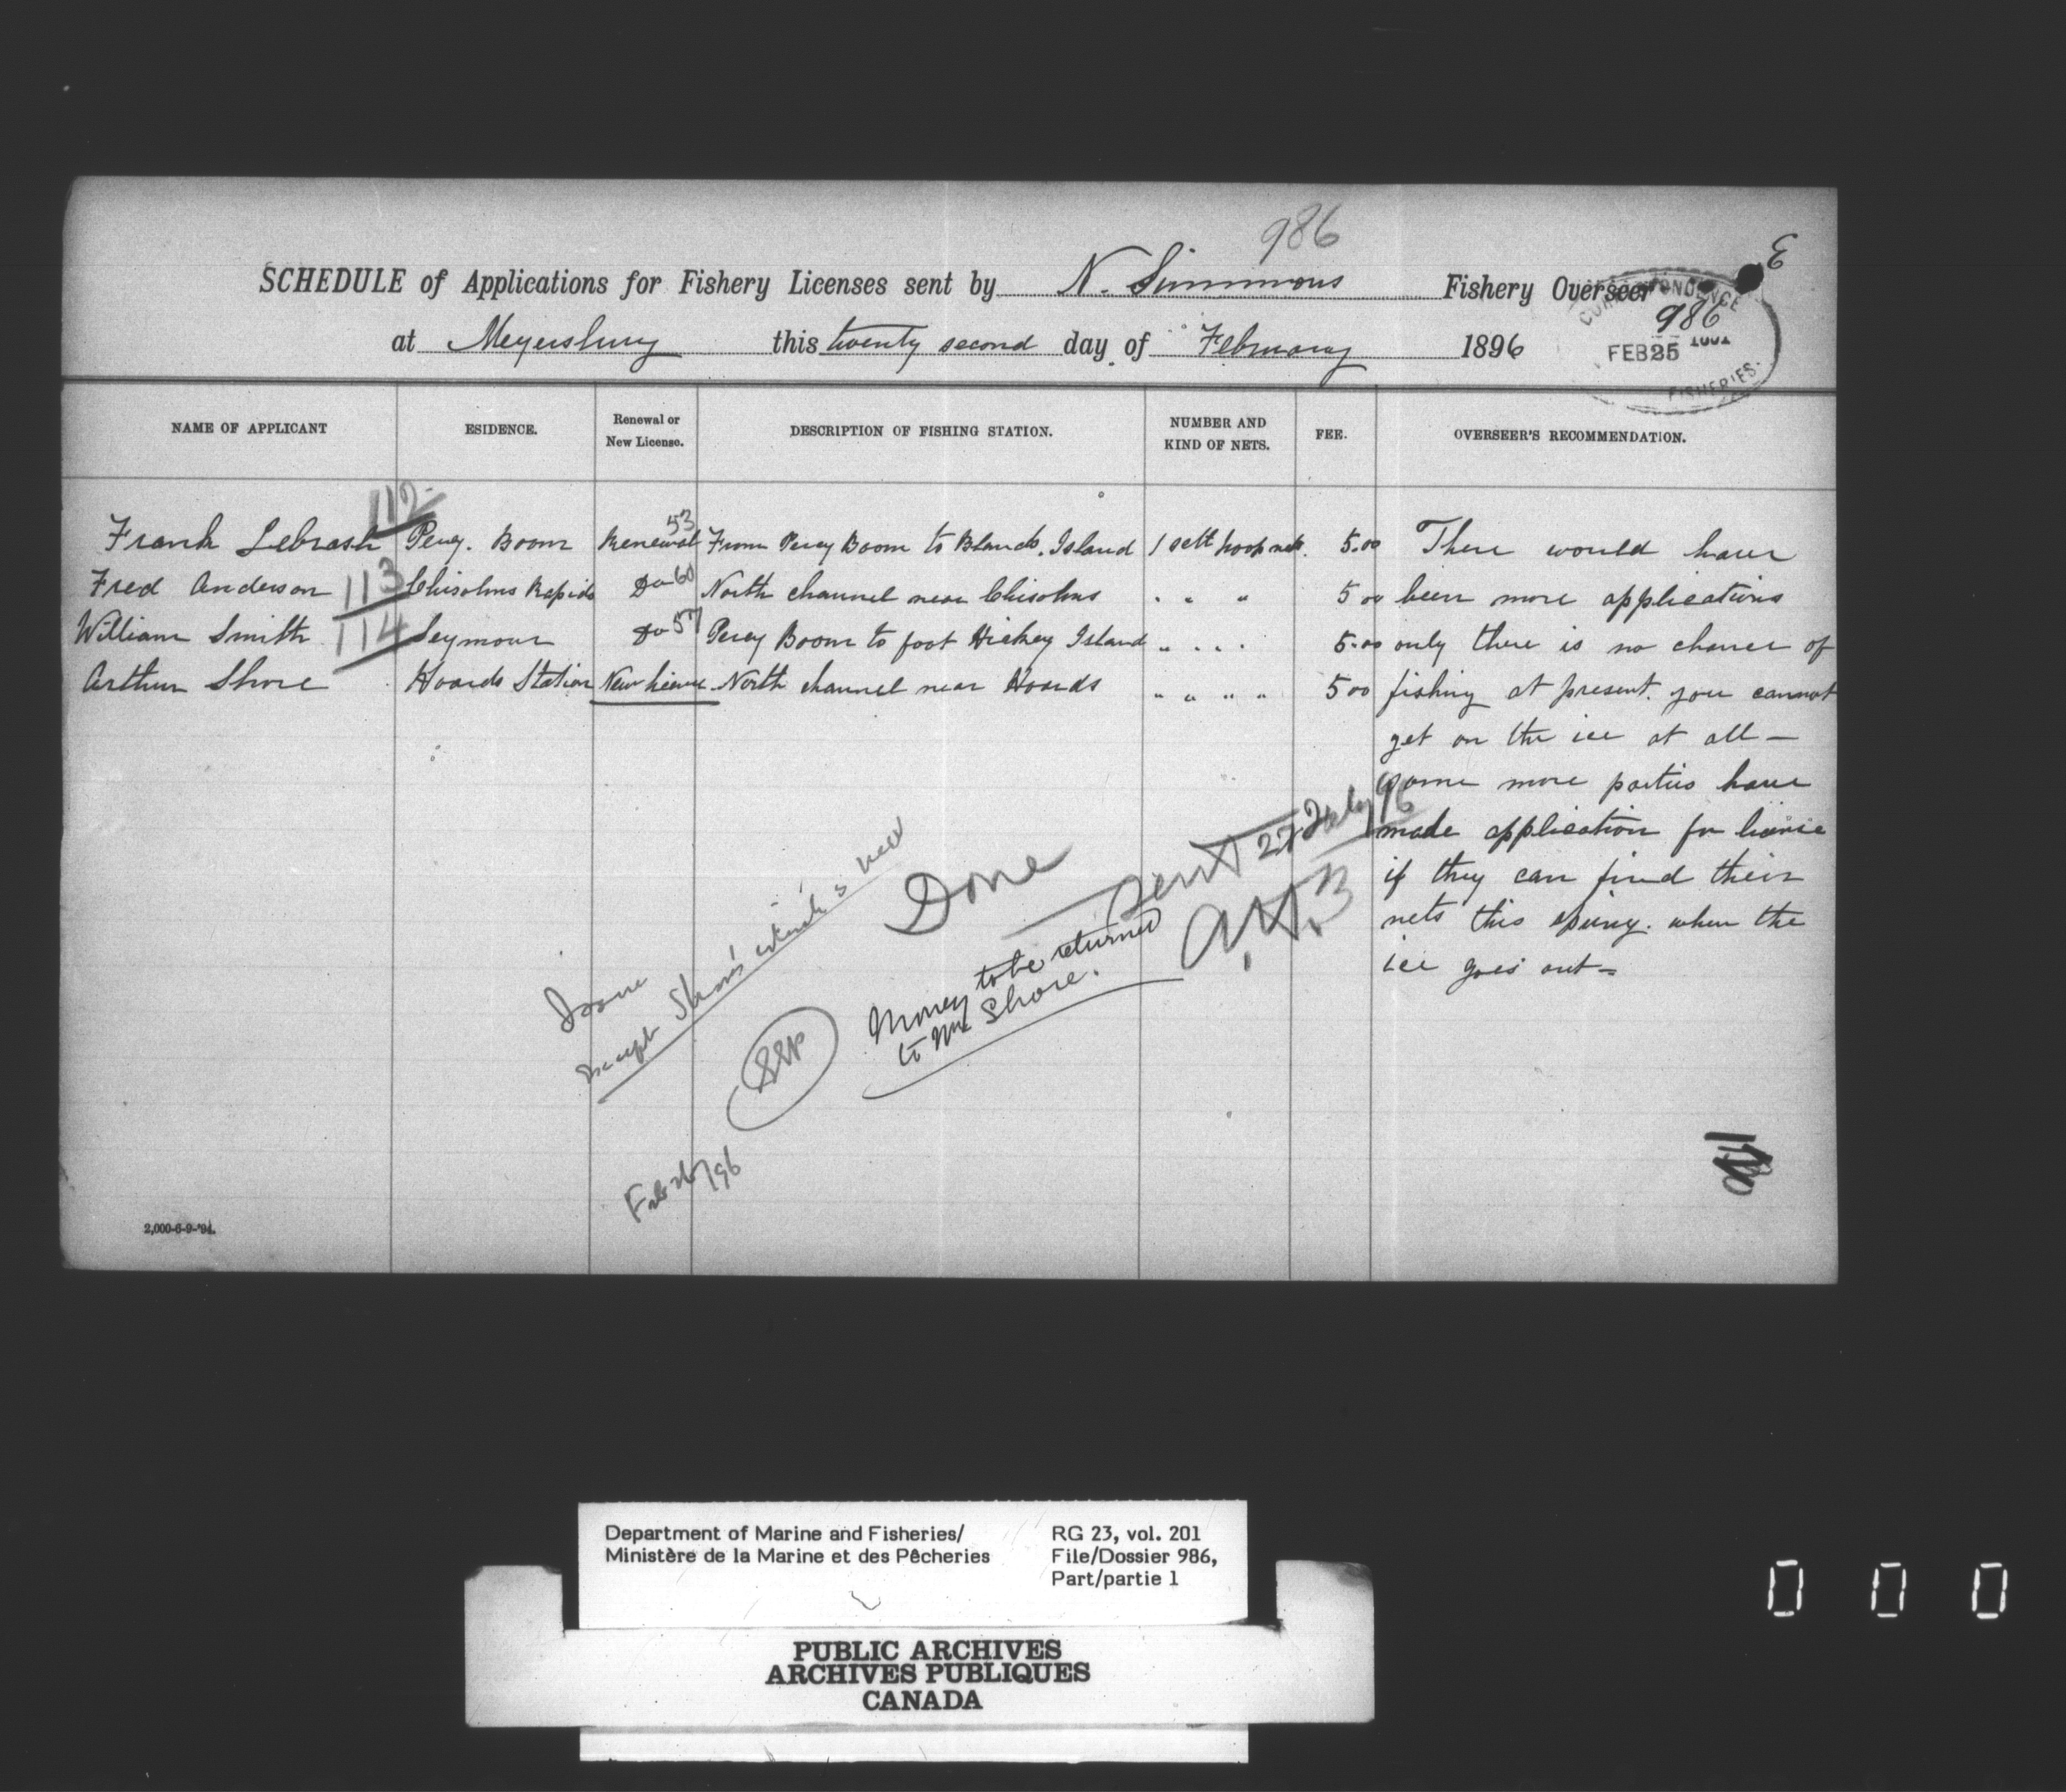 986
E
SCHEDULE of Applications for Fishery Licenses sent by N. Simmons Fishery Overseer
CORRESPONDENCE
986
FEB 25
FISHERIES.
at Meyersburg this twenty second day of February 1896
NAME OF APPLICANT ESIDENCE. Renewal or New License. DESCRIPTION OF FISHING STATION. NUMBER AND KIND OF NETS. FEE. OVERSEER'S RECOMMENDATION.
112 53
Frank Lebrash Percy. Boom Renewal From Percy Boom to Blands. Island 1 sett hoop nets. 5.00 There would have
Fred Anderson 113 Chisolms Rapids Do 60 North channel near Chisolms " " " 5 00 been more applications
William Smith 114 Seymour Do 57 Percy Boom to foot Hickey Island " " " " 5.00 only there is no chance of
Arthur Shore Hoards Station New license North channel near Hoards " " " " 5 00 fishing at present. you cannot
get on the ice at all —
some more parties have
made application for licence
if they can find their
nets this spring. when the
ice goes out =
Done
except Shore's which is new
Done
Sent 27 Feby 96
Money to be returned
to Mr Shore.
Feb 26/96
2,000-6-9-'94.
Department of Marine and Fisheries/
Ministère de la Marine et des Pêcheries
RG 23, vol. 201
File/Dossier 986,
Part/partie 1
PUBLIC ARCHIVES
ARCHIVES PUBLIQUES
CANADA
0 0 0